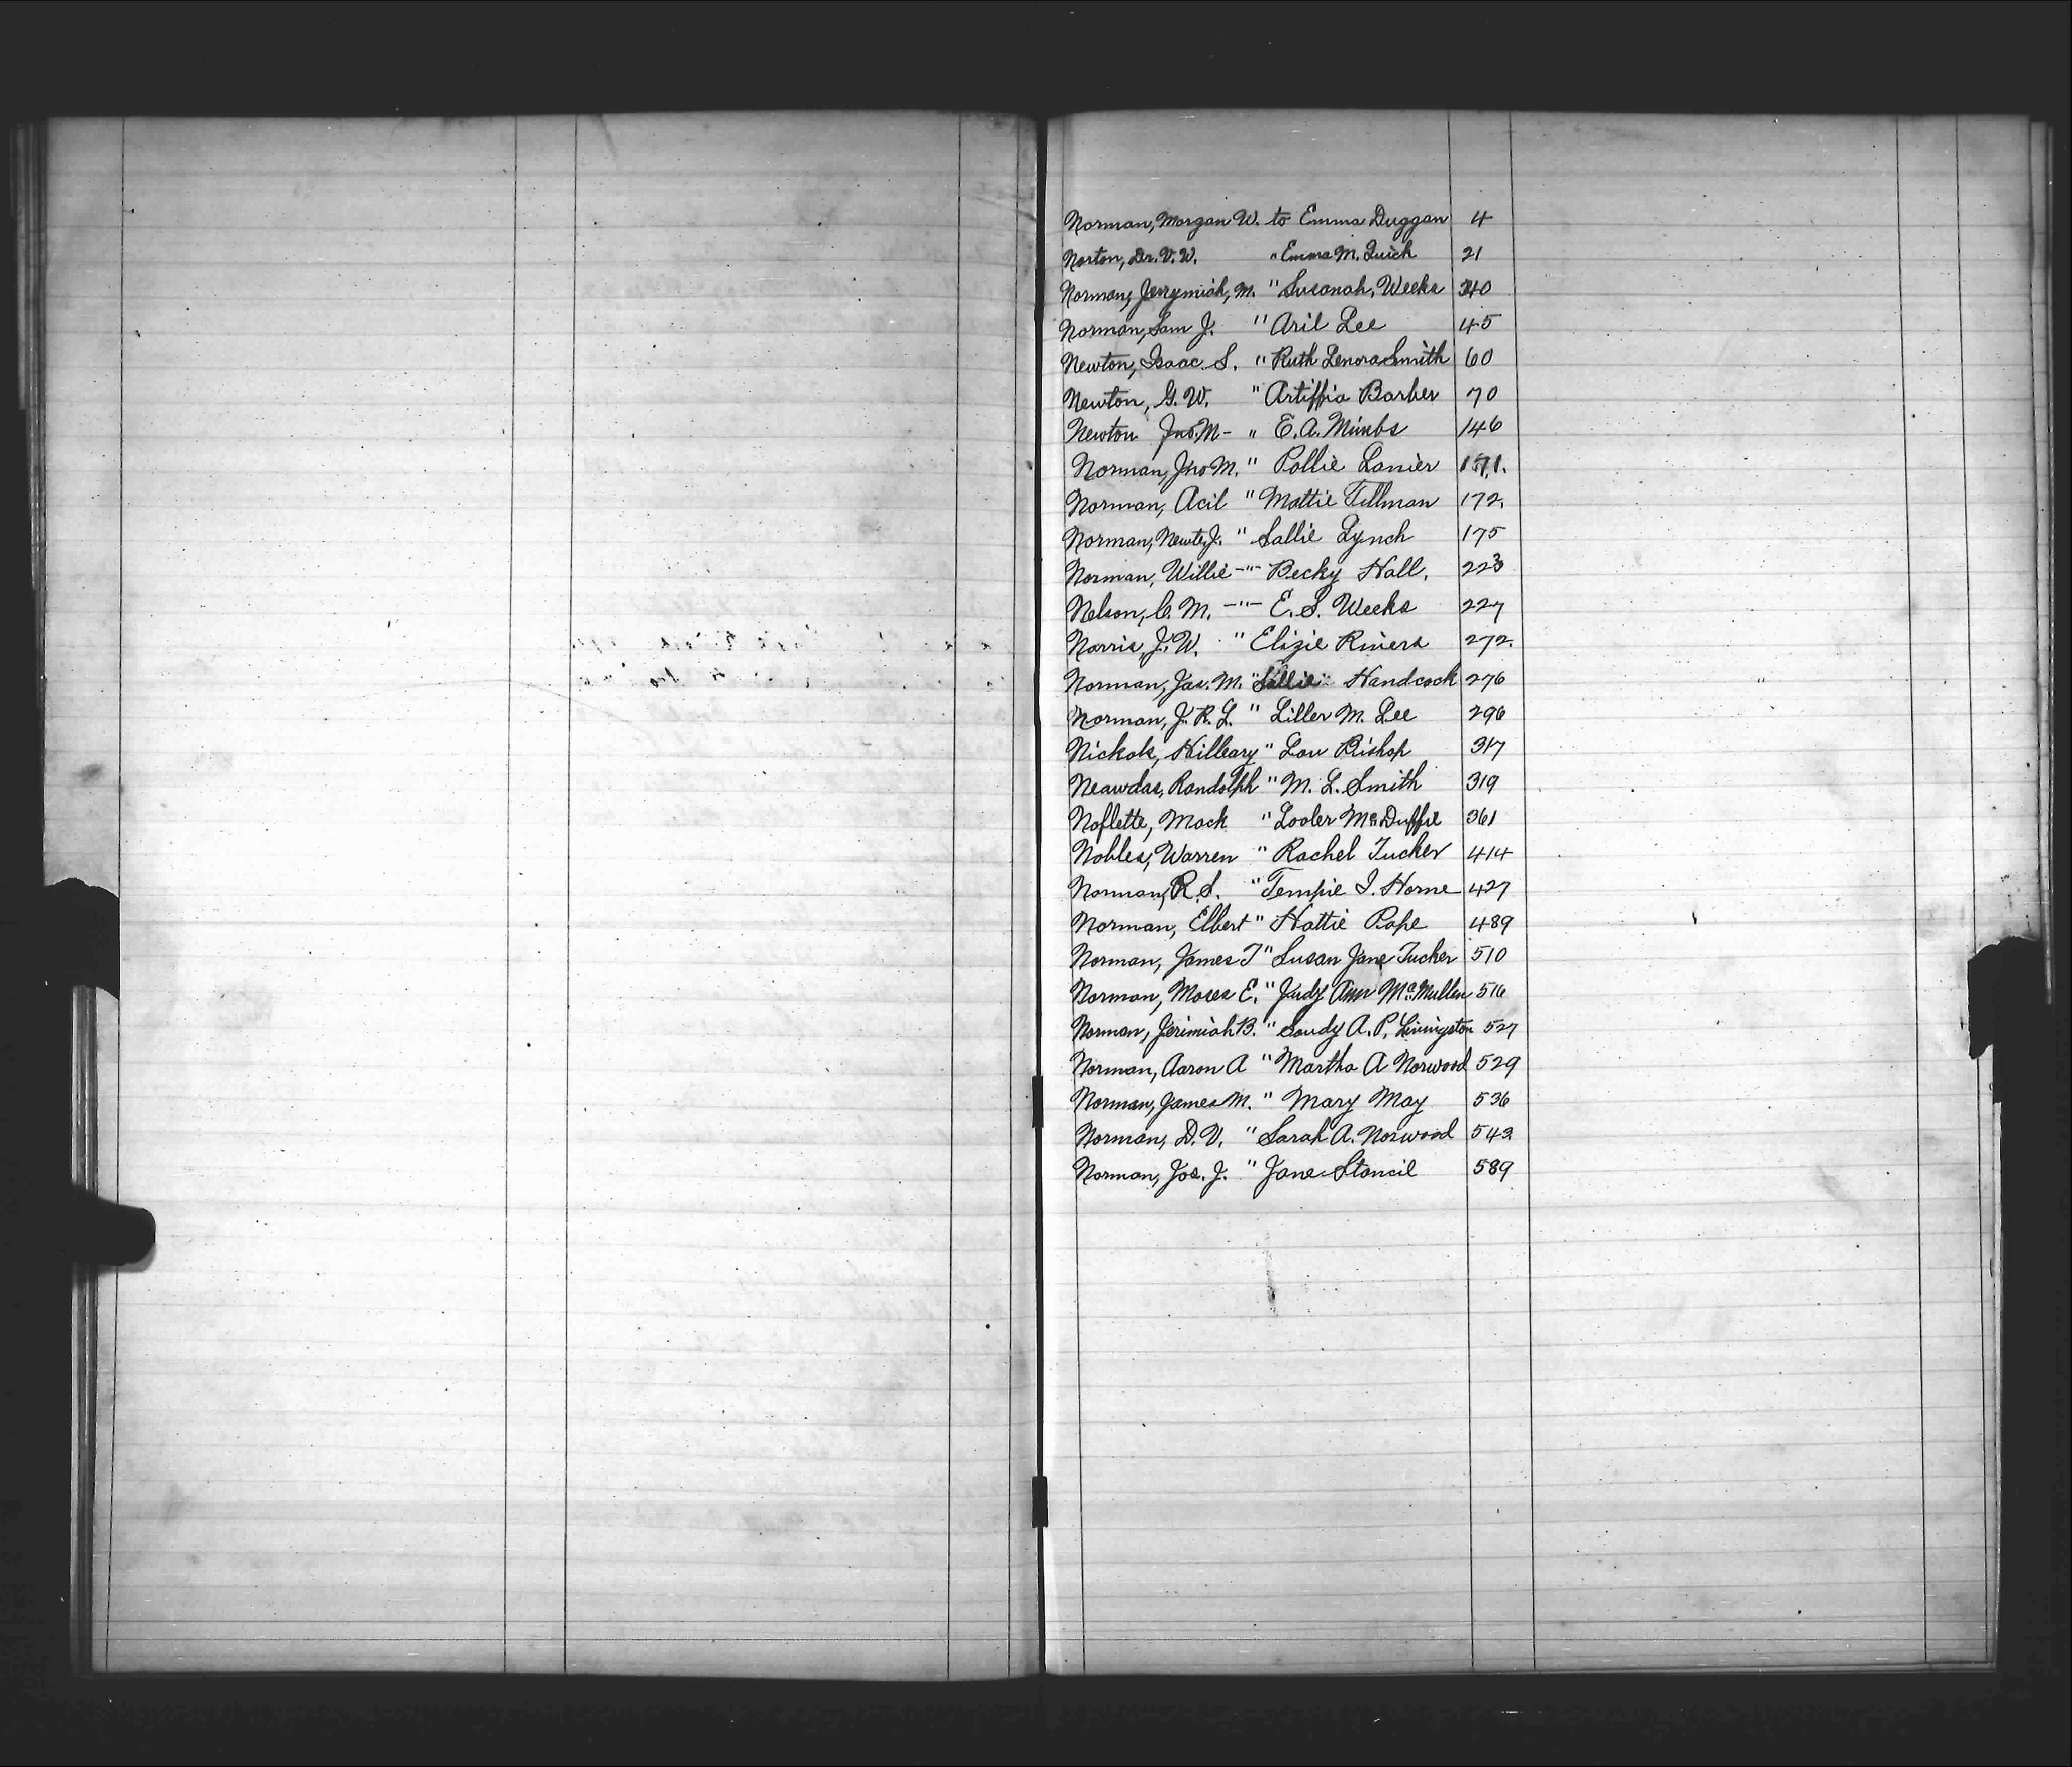 Norman, Morgan W. to Emma Duggan 4
Norton, Dr. V. W. " Emma M. Quick 21
Norman, Jerrymiah, M. " Susanah, Weeks 340
Norman, Sam J. " Aril Lee 45
Newton, Isaac S. " Ruth Lenora Smith 60
Newton, G. W. " Artiffia Barber 70
Newton Jno. M - " E. A. Mimbs 146
Norman, Jno M. " Pollie Lanier 171.
Norman, Acil " Mattie Tillman 172.
Norman, Newte J. " Sallie Lynch 175
Norman, Willie -"- Becky Hall. 223
Nelson, C. M. -"- E. S. Weeks 227
Norris, J. W. " Elizie Rivers 272.
Norman, Jas. M. " Sallie Handcock 276
Norman, J. R. L. " Liller M. Lee 296
Nickols, Hilleary " Lou Bishop 317
Neawdas, Randolph " M. L. Smith 319
Noflette, Mack " Looler McDuffie 361
Nobles, Warren " Rachel Tucker 414
Norman, R. S. " Tempie I. Horne 427
Norman, Elbert " Hattie Pope 489
Norman, James T " Susan Jane Tucker 510
Norman, Moses E. " Judy Ann McMullen 516
Norman, Jerimiah B. " Soudy A. P. Livingston 527
Norman, Aaron A " Martha A Norwood 529
Norman, James M. " Mary May 536
Norman, D. V. " Sarah A. Norwood 542
Norman, Jos. J. " Jane Stancil 589